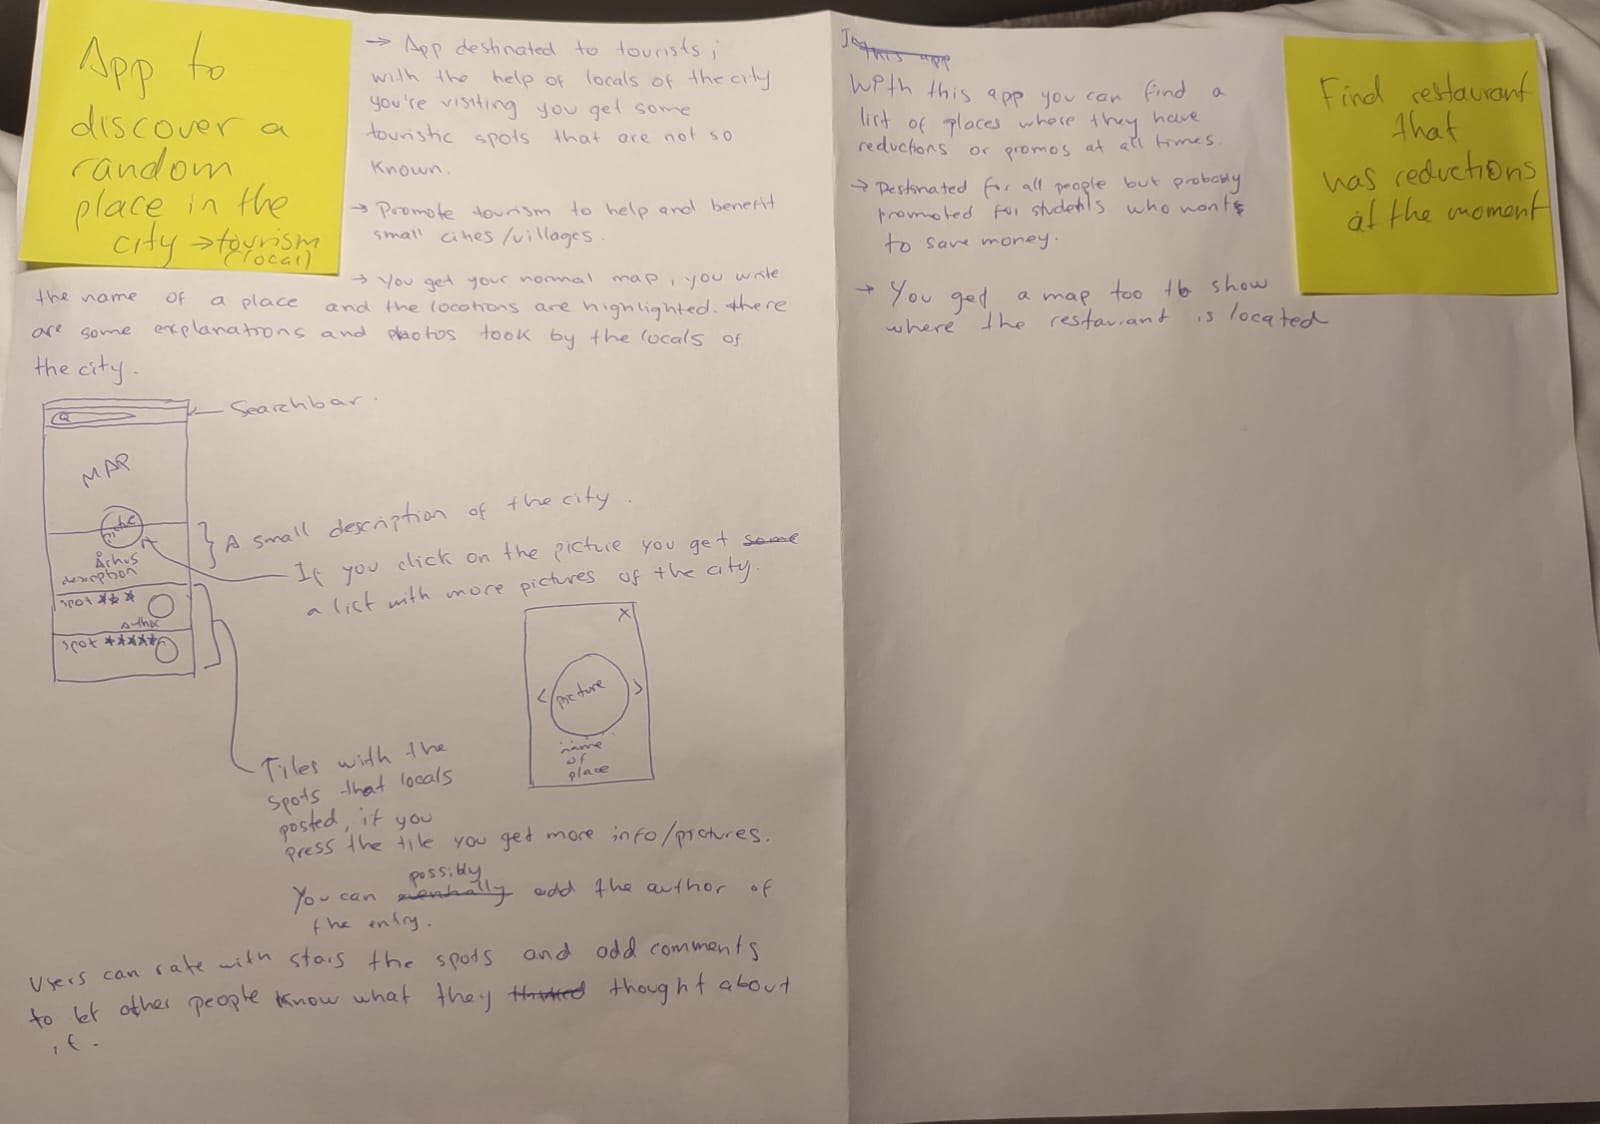 App to
discover a
random
place in the
city → tourism
(local)
→ App destinated to tourists,
with the help of locals of the city
you're visiting you get some
touristic spots that are not so
known.
→ Promote tourism to help and benefit
small cities/villages.
→ You get your normal map, you write
the name of a place and the locations are highlighted. there
are some explanations and photos took by the locals of
the city.
Searchbar
MAP
A small description of the city.
If you click on the picture you get some
a list with more pictures of the city.
Århus
description
spot ***
author
spot *****
X
< picture >
name
of
place
Tiles with the
spots that locals
posted, if you
press the tile you get more info/pictures.
possibly
You can eventually add the author of
the entry.
Users can rate with stars the spots and add comments
to let other people know what they thinked thought about
it.
In this app
With this app you can find a
list of places where they have
reductions or promos at all times.
→ Destinated for all people but probably
promoted for students who wants
to save money.
→ You get a map too to show
where the restaurant is located
Find restaurant
that
has reductions
at the moment